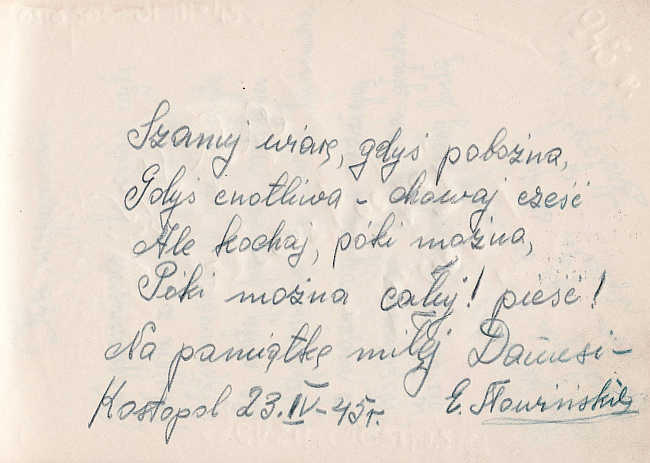 Szanuj wiarę, gdyś pobożna,
Gdyś cnotliwa - chowaj cześć
Ale kochaj, póki można,
Póki można całuj! pieść!
Na pamiątkę miłej Danusi -
Kostopol 23.IV-45r. E. Słowiński